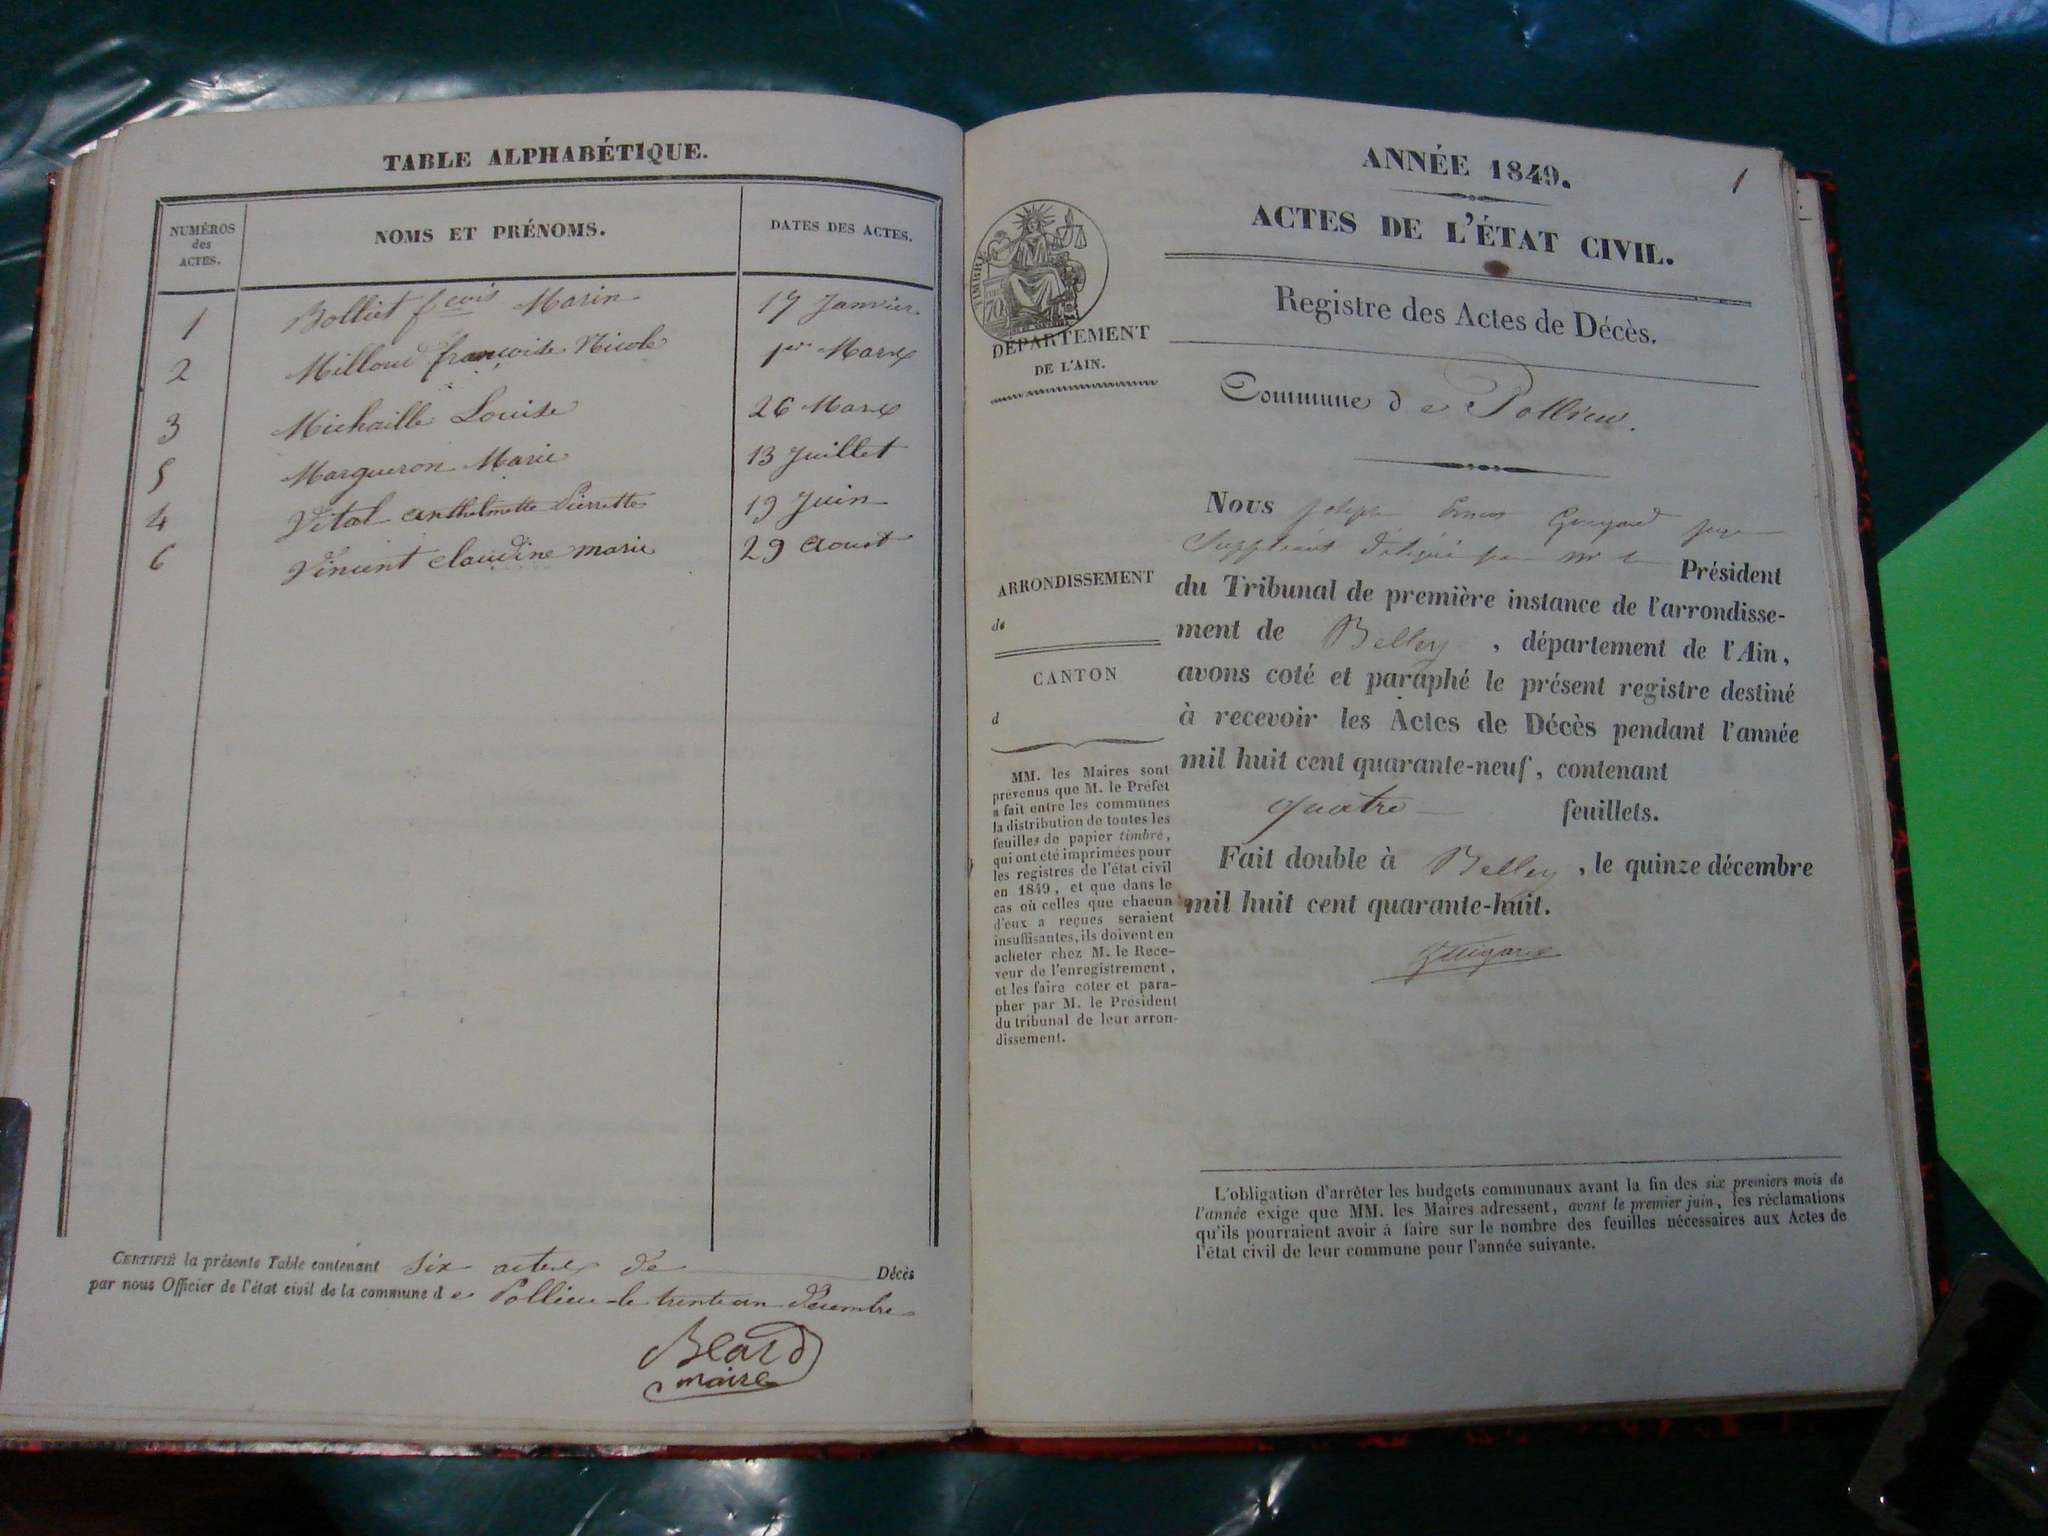 TABLE ALPHABÉTIQUE.
NUMÉROS des ACTES. NOMS ET PRÉNOMS. DATES DES ACTES.
1 Bolliet fcois Marin 17 Janvier.
2 Milloud françoise Nicole 1er Mars
3 Michaille Louise 26 Mars
5 Margueron Marie 13 Juillet
4 Vital anthelmette Pierrette 19 Juin
6 Vincent claudine marie 29 Aoust
CERTIFIÉ la présente Table contenant six actes de Décès
par nous Officier de l'état civil de la commune de Pollieu le trente un Décembre
Béard
maire
1
ANNÉE 1849.
ACTES DE L'ÉTAT CIVIL.
Registre des Actes de Décès.
TIMBRE
70
DÉPARTEMENT
DE L'AIN.
Commune de Pollieu.
Nous Joseph juge
Suppléant Délégué par mr le Président
du Tribunal de première instance de l'arrondisse-
ment de Belley, département de l'Ain,
avons coté et paraphé le présent registre destiné
à recevoir les Actes de Décès pendant l'année
mil huit cent quarante-neuf, contenant
quatre feuillets.
Fait double à Belley, le quinze décembre
mil huit cent quarante-huit.
ARRONDISSEMENT
de
CANTON
d
MM. les Maires sont
prévenus que M. le Préfet
a fait entre les communes
la distribution de toutes les
feuilles de papier timbré,
qui ont été imprimées pour
les registres de l'état civil
en 1849, et que dans le
cas où celles que chacun
d'eux a reçues seraient
insuffisantes, ils doivent en
acheter chez M. le Rece-
veur de l'enregistrement,
et les faire coter et para-
pher par M. le Président
du tribunal de leur arron-
dissement.
L'obligation d'arrêter les budgets communaux avant la fin des six premiers mois de
l'année exige que MM. les Maires adressent, avant le premier juin, les réclamations
qu'ils pourraient avoir à faire sur le nombre des feuilles nécessaires aux Actes de
l'état civil de leur commune pour l'année suivante.